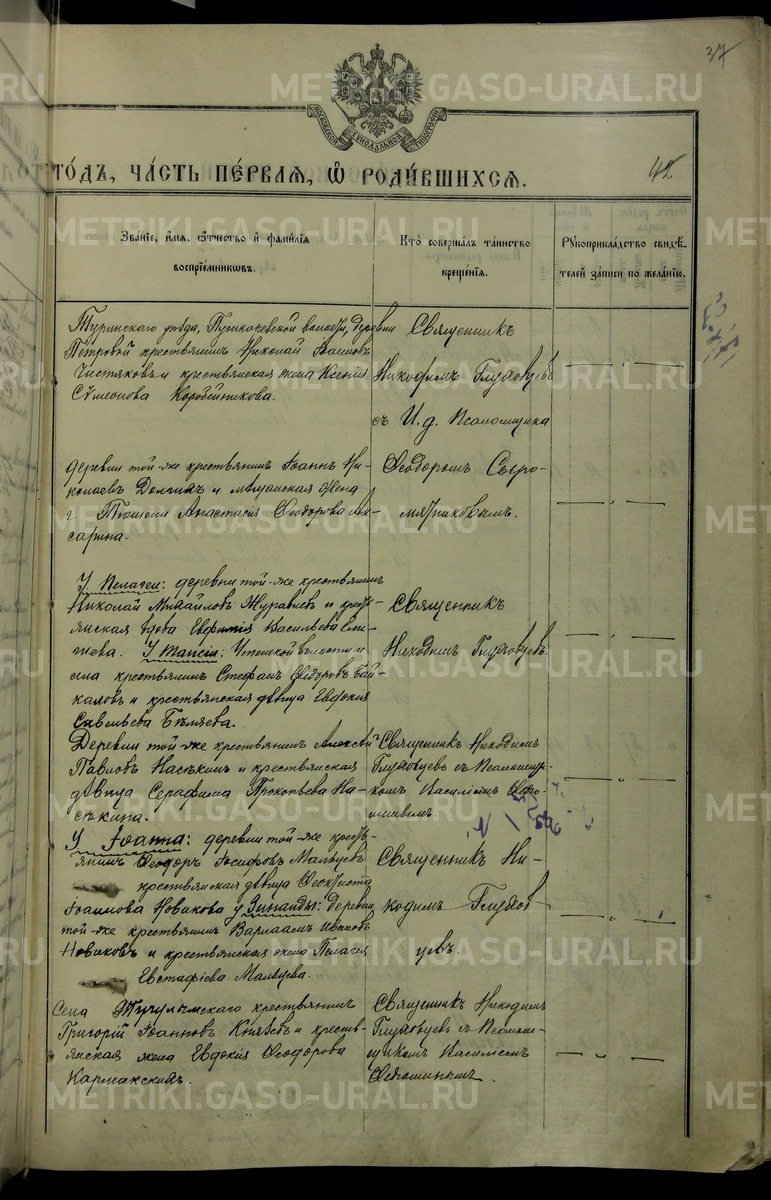 37
МОСКОВСКОЙ СѴНОДАЛЬНОЙ ТИПОГРАФІИ
ГО́ДЪ, ЧА́СТЬ ПЕ́РВАЯ, Ѽ РОДИ́ВШИХСЯ.
42
Зва́нїе, и́мя, ѻ҆́тчество и҆ фами́лїя
воспрїе́мниковъ.
Кто̀ соверша́лъ та́инство
креще́нїя.
Рꙋкоприкла́дство свидѣ́-
телей за́писи по жела́нїю.
Туринскаго уѣзда, Пушкаревской волости, деревни
Петровой крестьянинъ Николай Іоанновъ
Чистяковъ и крестьянская жена Ксенія
Сѵмеонова Коробейникова.
Священникъ
Никодимъ Глуховцевъ
съ И.д. Псаломщика
деревни той-же крестьянинъ Іоаннъ Ни-
колаевъ Долгихъ и мѣщанская жена
г. Тюмени Анастасія Ѳеодорова
Ѳеодоромъ Сыро-
мятниковымъ.
У Пелагеи: деревни той-же крестьянинъ
Николай Михайловъ Журавлевъ и кресть-
янская вдова Евфимія Васильева
У Таисіи: Успенской волости и
села крестьянинъ Стефанъ Ѳеодоровъ Бай-
каловъ и крестьянская дѣвица Евдокія
Савельева Бѣляева.
Священникъ
Никодимъ Глуховцевъ.
Деревни той-же крестьянинъ Алексѣй
Павловъ Насѣкинъ и крестьянская
дѣвица Серафима Прокопьева На-
сѣкина.
Священникъ Никодимъ
Глуховцевъ съ Псаломщи-
комъ Василіемъ
У Іоанна: деревни той-же кресть-
янинъ Ѳеодоръ Іосифовъ Мальцевъ
крестьянская дѣвица Ѳеоктиста
Іоаннова Новикова у Зинаиды: Деревни
той-же крестьянинъ Варлаамъ Ивановъ
Новиковъ и крестьянская жена Пелагея
Евстафіева Мальцева.
Священникъ Ни-
кодимъ Глухов-
цевъ.
Села Тугулымскаго крестьянинъ
Григорій Іоанновъ Князевъ и кресть-
янская жена Евдокія Ѳеодорова
Кармакскихъ.
Священникъ Никодимъ
Глуховцевъ съ Псалом-
щикомъ Василіемъ
METRIKI.GASO-URAL.RU